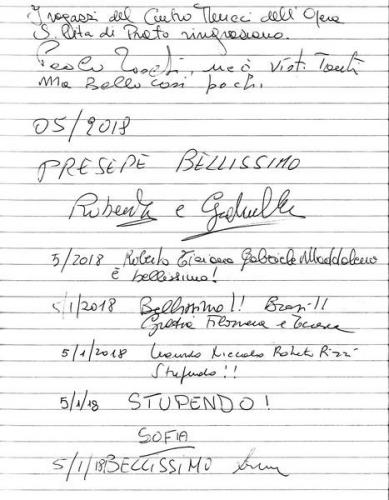 I ragazzi del Centro dell'Opera
S. Rita di Prato ringraziano.
Paolo , ne ò visti Tanti
Ma Bello così pochi.
05/2018
PRESEPE BELLISSIMO
Roberta e
5/2018 Roberto Tiziana Gabriele Maddalena
è bellissimo!
5/1/2018 Bellissimo!! Bravi!!
e
5/1/2018 Niccolò Roberto Rizzi
Stupendo!!
5/1/18 STUPENDO!
SOFIA
5/1/18 BELLISSIMO